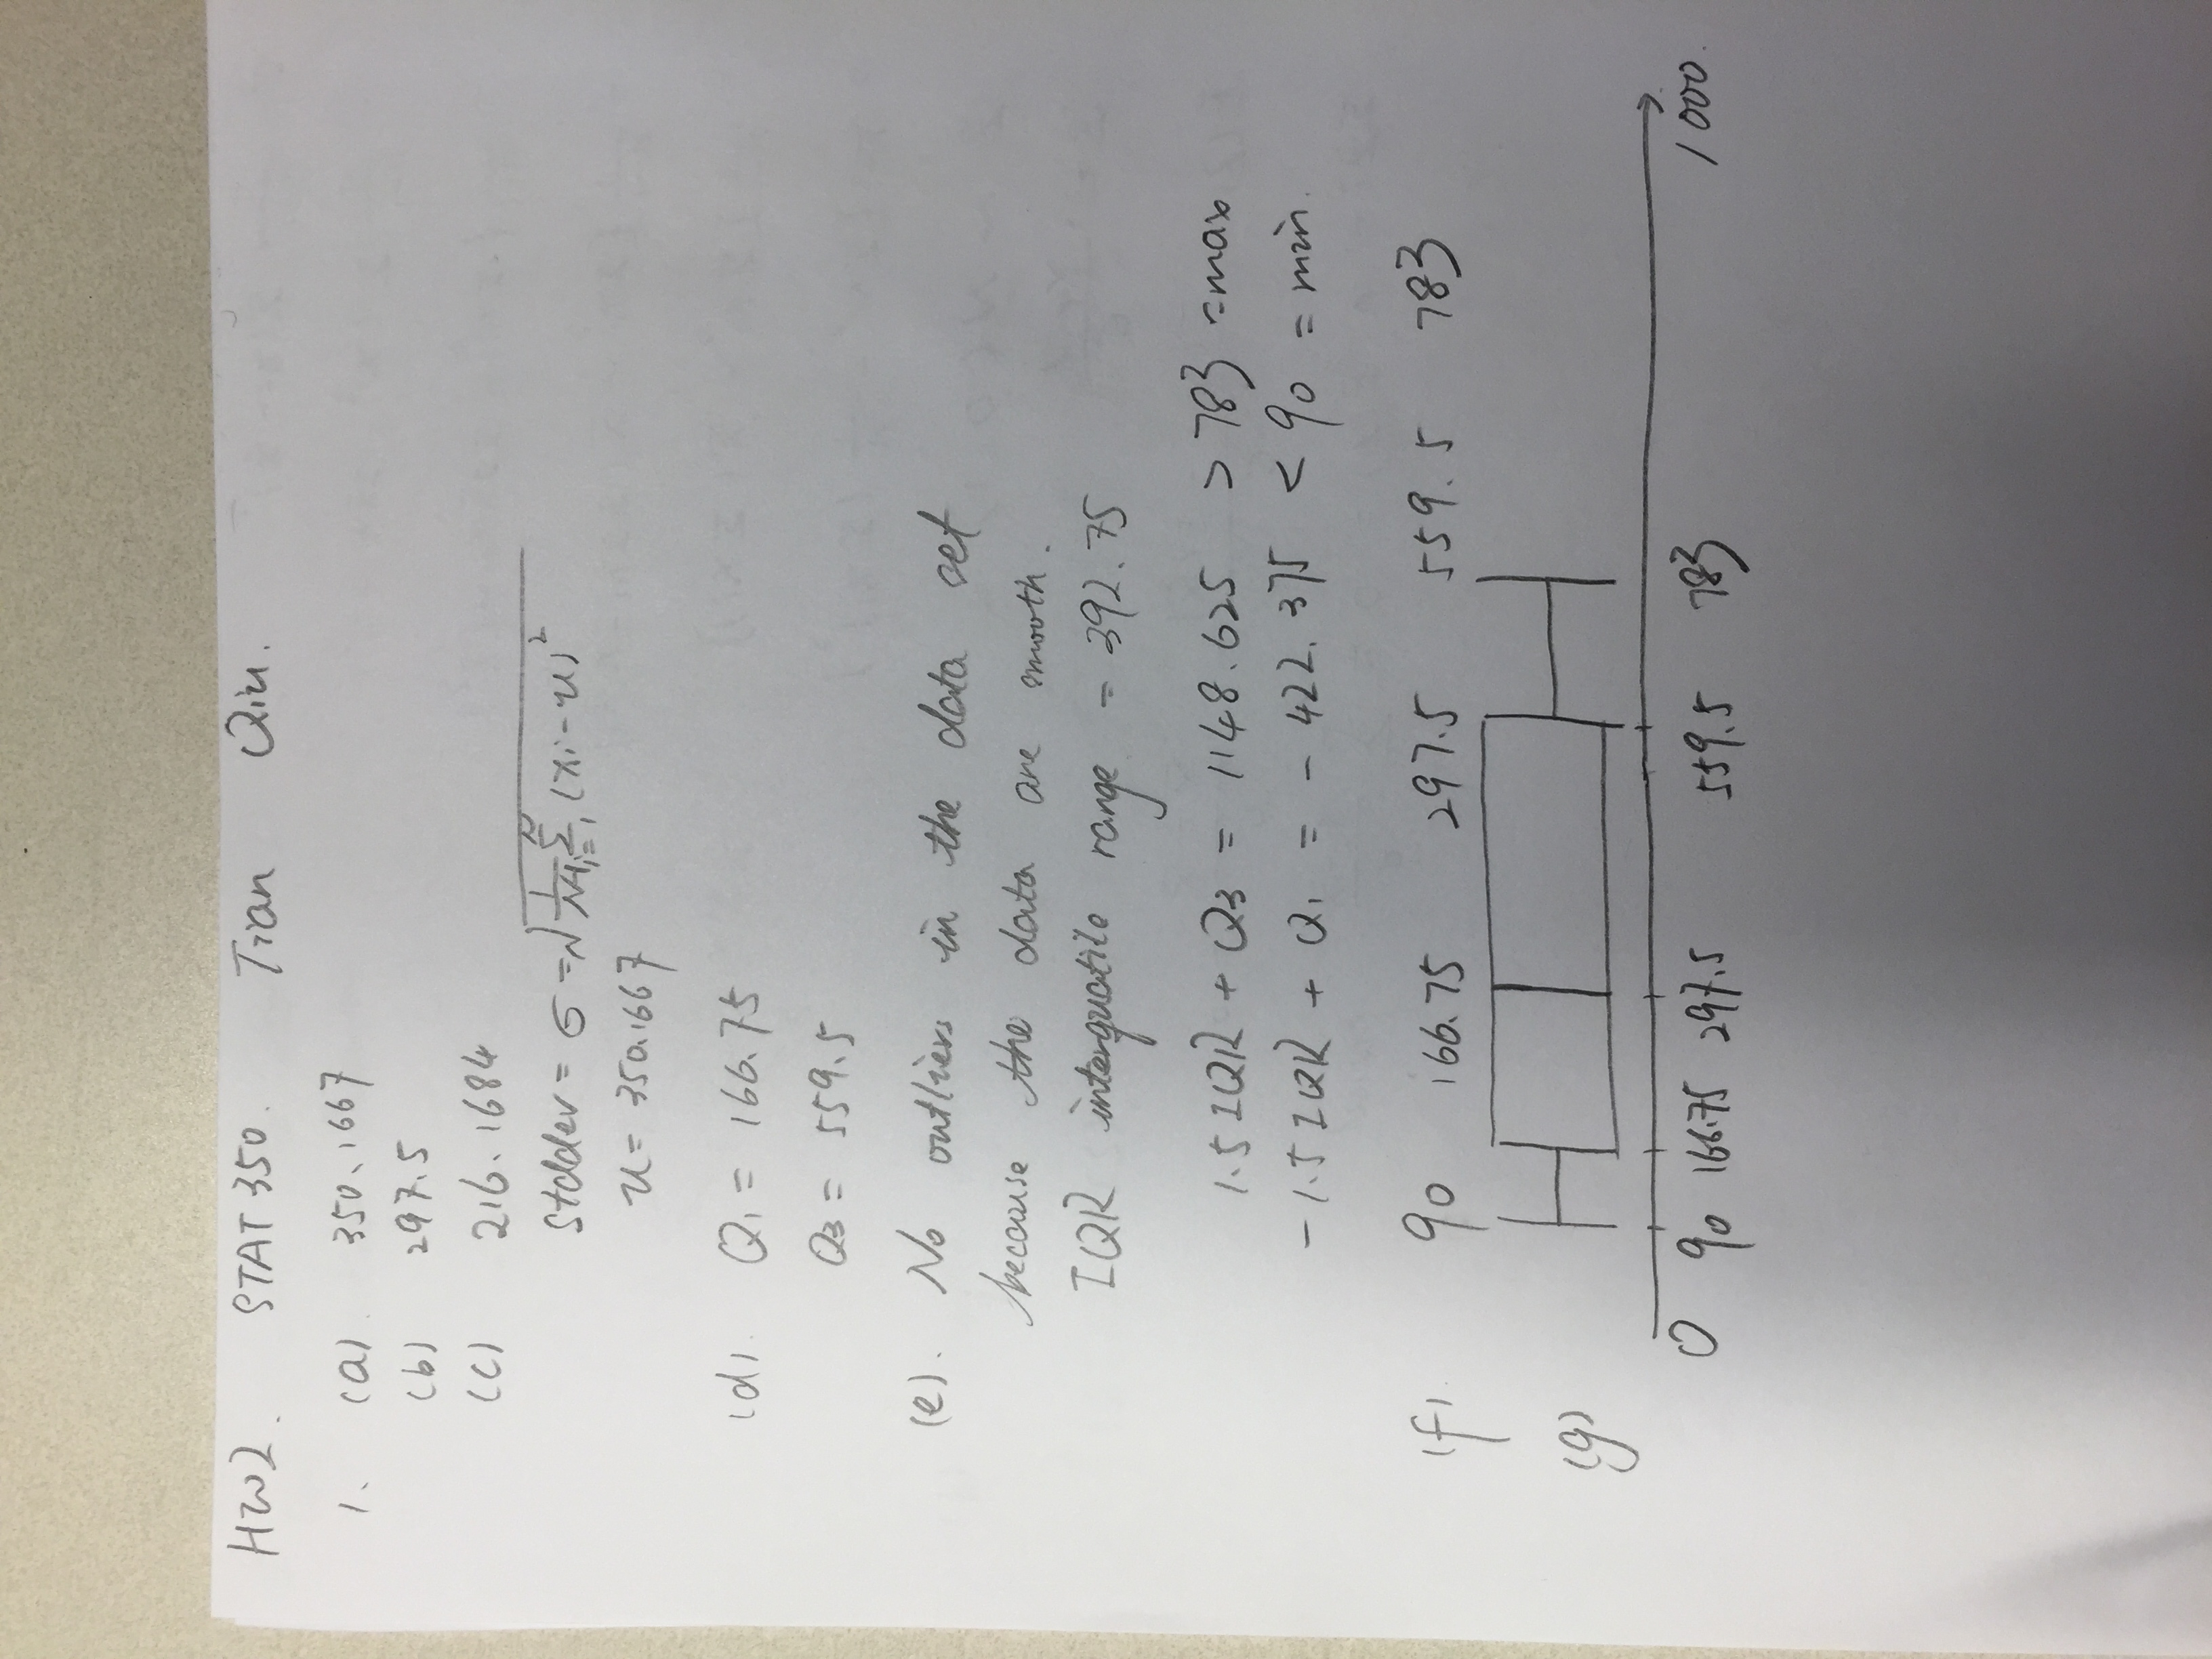 HW2. STAT 350. Tian Qiu.
1. (a). 350.1667
(b) 297.5
(c) 216.1684
stddev = σ = √(1/(N-1) Σ_{i=1}^{N} (xi - u)²)
u = 350.1667
(d). Q1 = 166.75
Q3 = 559.5
(e). No outliers in the data set
because the data are smooth.
IQR interquatile range = 392.75
1.5 IQR + Q3 = 1148.625 > 783 = max
-1.5 IQR + Q1 = -422.375 < 90 = min.
(f). 90 166.75 297.5 559.5 783
(g)
0 90 166.75 297.5 559.5 783 1000.